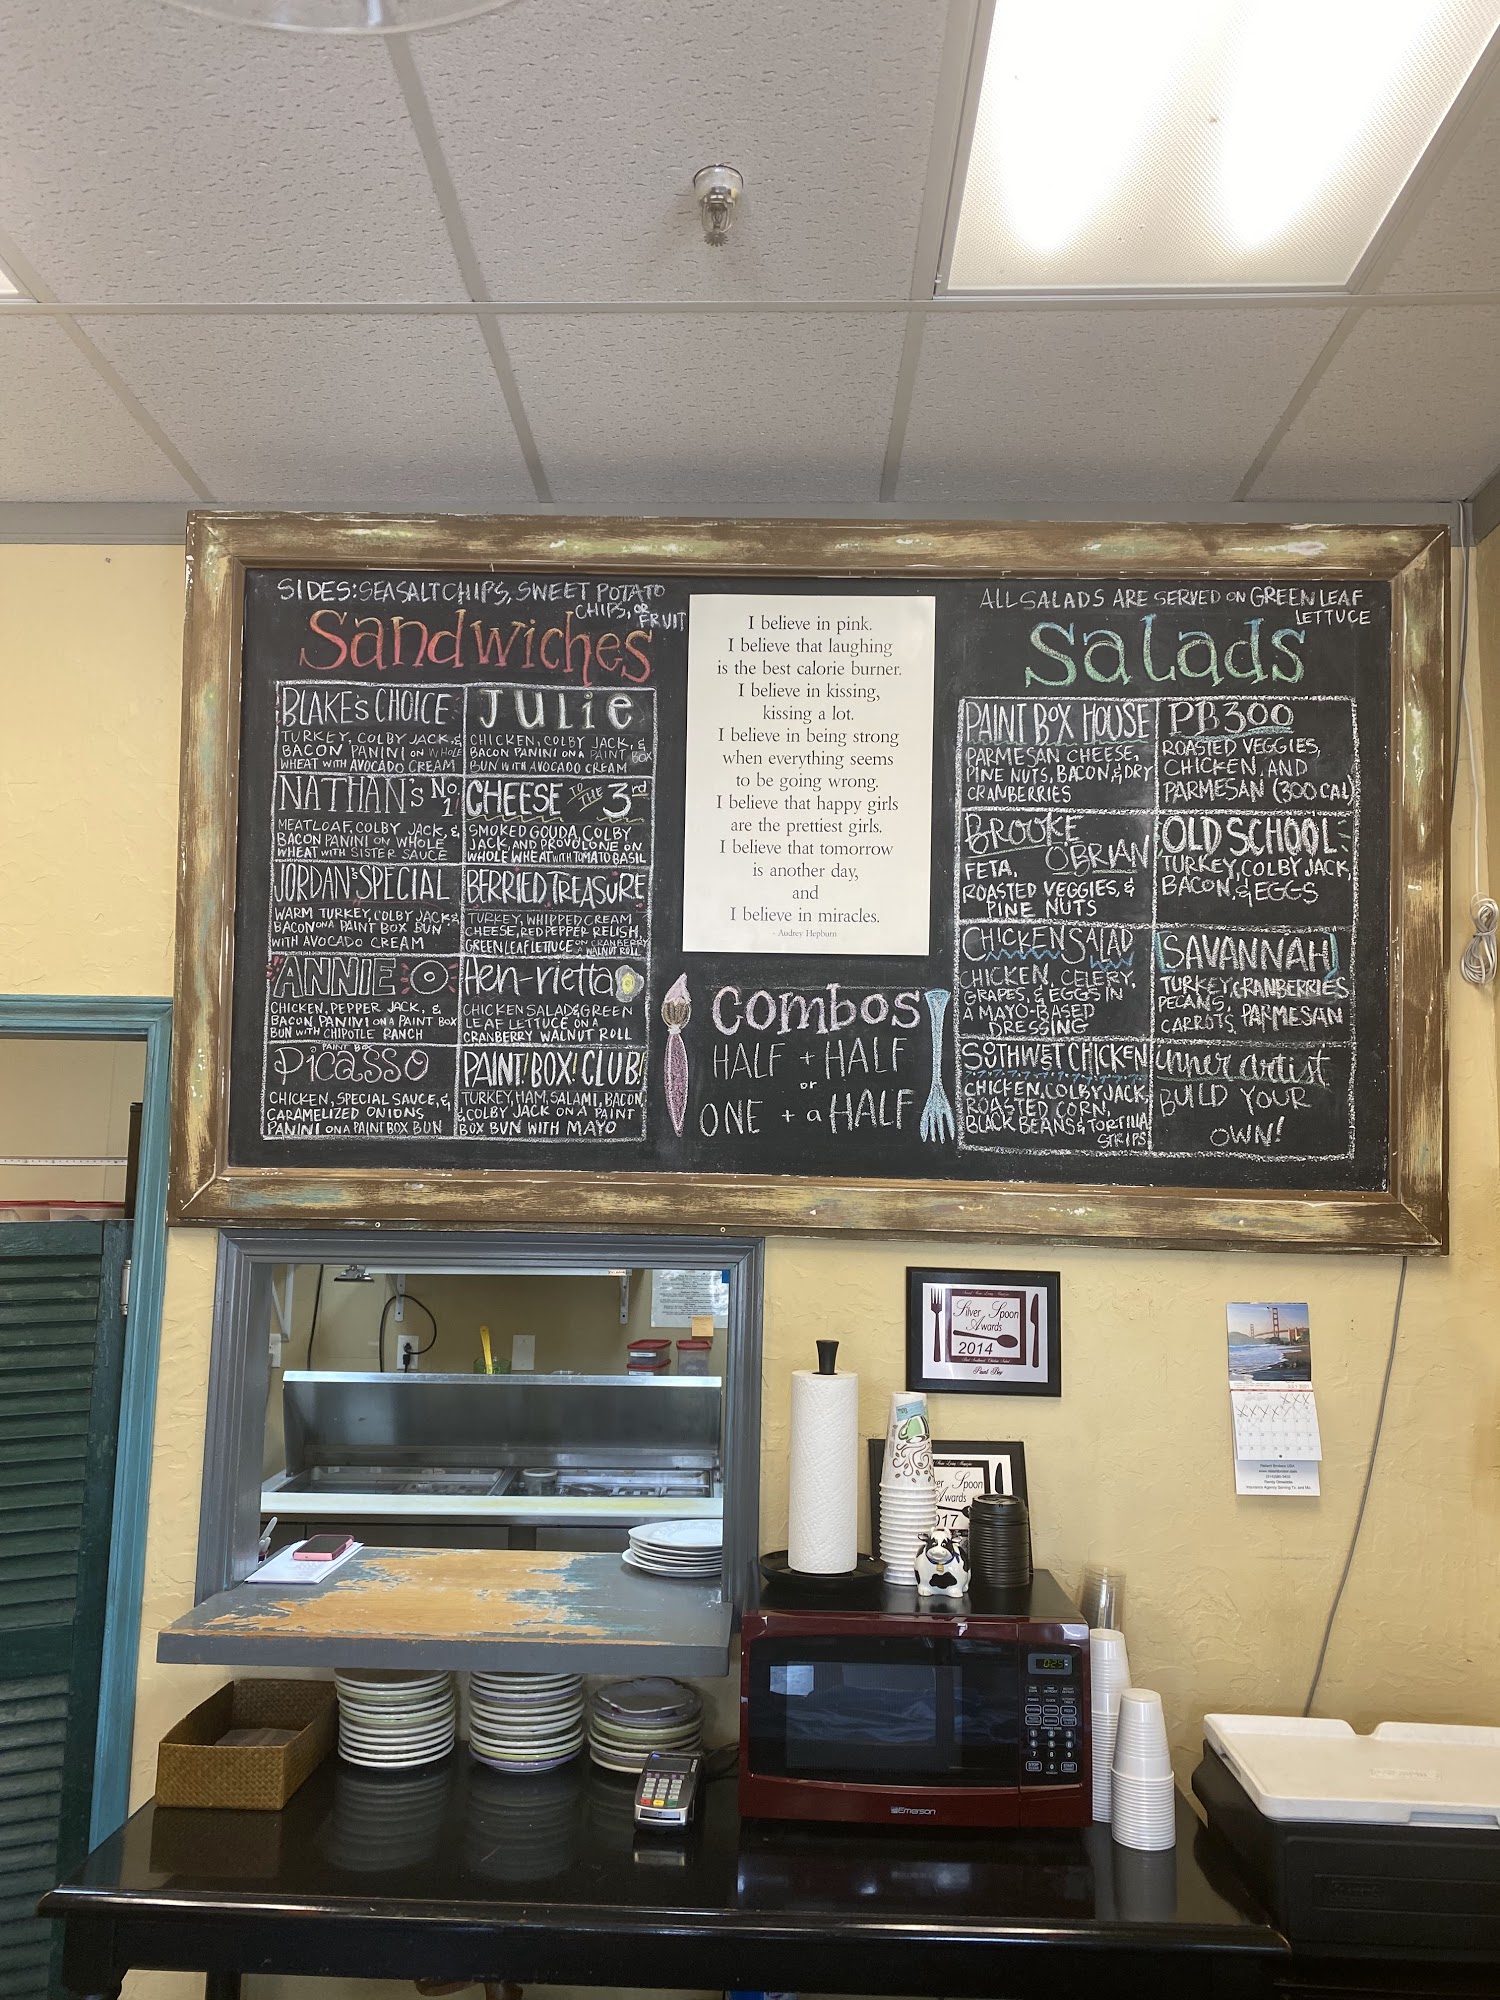 SIDES: SEA SALT CHIPS, SWEET POTATO
CHIPS, OR
FRUIT
Sandwiches
BLAKE'S CHOICE
TURKEY, COLBY JACK, &
BACON PANINI ON WHOLE
WHEAT WITH AVOCADO CREAM
JULIE
CHICKEN, COLBY JACK, &
BACON PANINI ON A PAINT BOX
BUN WITH AVOCADO CREAM
NATHAN'S No.
1!
MEATLOAF, COLBY JACK, &
BACON PANINI ON WHOLE
WHEAT WITH SISTER SAUCE
CHEESE TO THE 3rd
SMOKED GOUDA, COLBY
JACK, AND PROVOLONE ON
WHOLE WHEAT WITH TOMATO BASIL
JORDAN'S SPECIAL
WARM TURKEY, COLBY JACK &
BACON ON A PAINT BOX BUN
WITH AVOCADO CREAM
BERRIED TREASURE
TURKEY, WHIPPED CREAM
CHEESE, RED PEPPER RELISH,
GREEN LEAF LETTUCE ON CRANBERRY
WALNUT ROLL
ANNIE O
CHICKEN, PEPPER JACK, &
BACON PANINI ON A PAINT BOX
BUN WITH CHIPOTLE RANCH
Hen-rietta
CHICKEN SALAD & GREEN
LEAF LETTUCE ON A
CRANBERRY WALNUT ROLL
PAINT BOX
Picasso
CHICKEN, SPECIAL SAUCE, &
CARAMELIZED ONIONS
PANINI ON A PAINT BOX BUN
PAINT! BOX! CLUB!
TURKEY, HAM, SALAMI, BACON,
& COLBY JACK ON A PAINT
BOX BUN WITH MAYO
I believe in pink.
I believe that laughing
is the best calorie burner.
I believe in kissing,
kissing a lot.
I believe in being strong
when everything seems
to be going wrong.
I believe that happy girls
are the prettiest girls.
I believe that tomorrow
is another day,
and
I believe in miracles.
- Audrey Hepburn
Combos
HALF + HALF
or
ONE + a HALF
ALL SALADS ARE SERVED ON GREEN LEAF
LETTUCE
Salads
PAINT BOX HOUSE
PARMESAN CHEESE,
PINE NUTS, BACON, & DRY
CRANBERRIES
PB300
ROASTED VEGGIES,
CHICKEN, AND
PARMESAN (300 CAL)
BROOKE
O'BRIAN
FETA,
ROASTED VEGGIES, &
PINE NUTS
OLD SCHOOL
TURKEY, COLBY JACK,
BACON, & EGGS
CHICKEN SALAD
CHICKEN, CELERY,
GRAPES, & EGGS IN
A MAYO-BASED
DRESSING
SAVANNAH
TURKEY, CRANBERRIES
PECANS,
CARROTS, PARMESAN
SOTHWEST CHICKEN
CHICKEN, COLBY JACK,
ROASTED CORN,
BLACK BEANS & TORTILLA
STRIPS
inner artist
BUILD YOUR
OWN!
Silver Spoon
Awards
2014
Paint Box
Silver Spoon
Awards
2017
Emerson